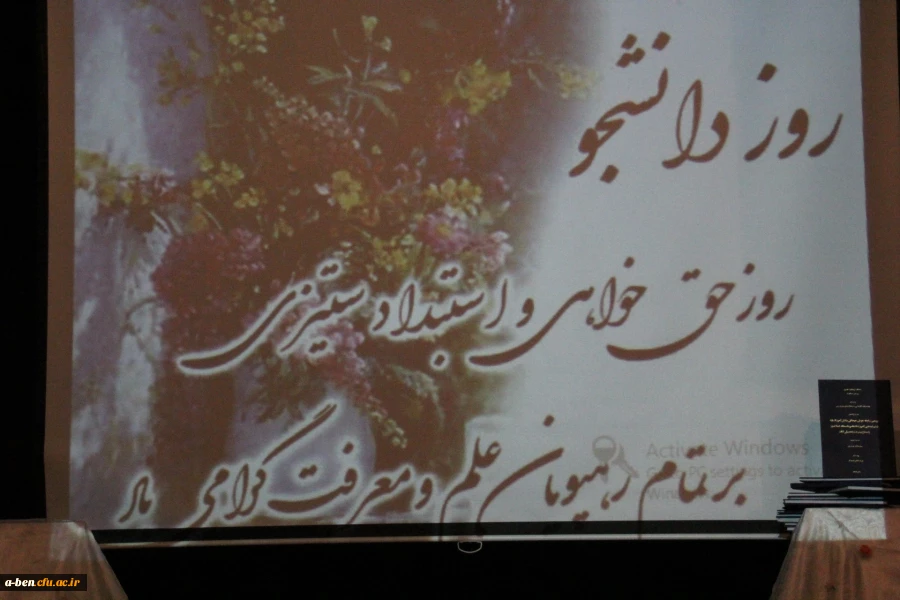 روز دانشجو
روز حق خواهی و استبداد ستیزی
بر تمام رهپویان علم و معرفت گرامی باد
Activate Windows
Go to PC settings to activ
Windows
a-ben.cfu.ac.ir